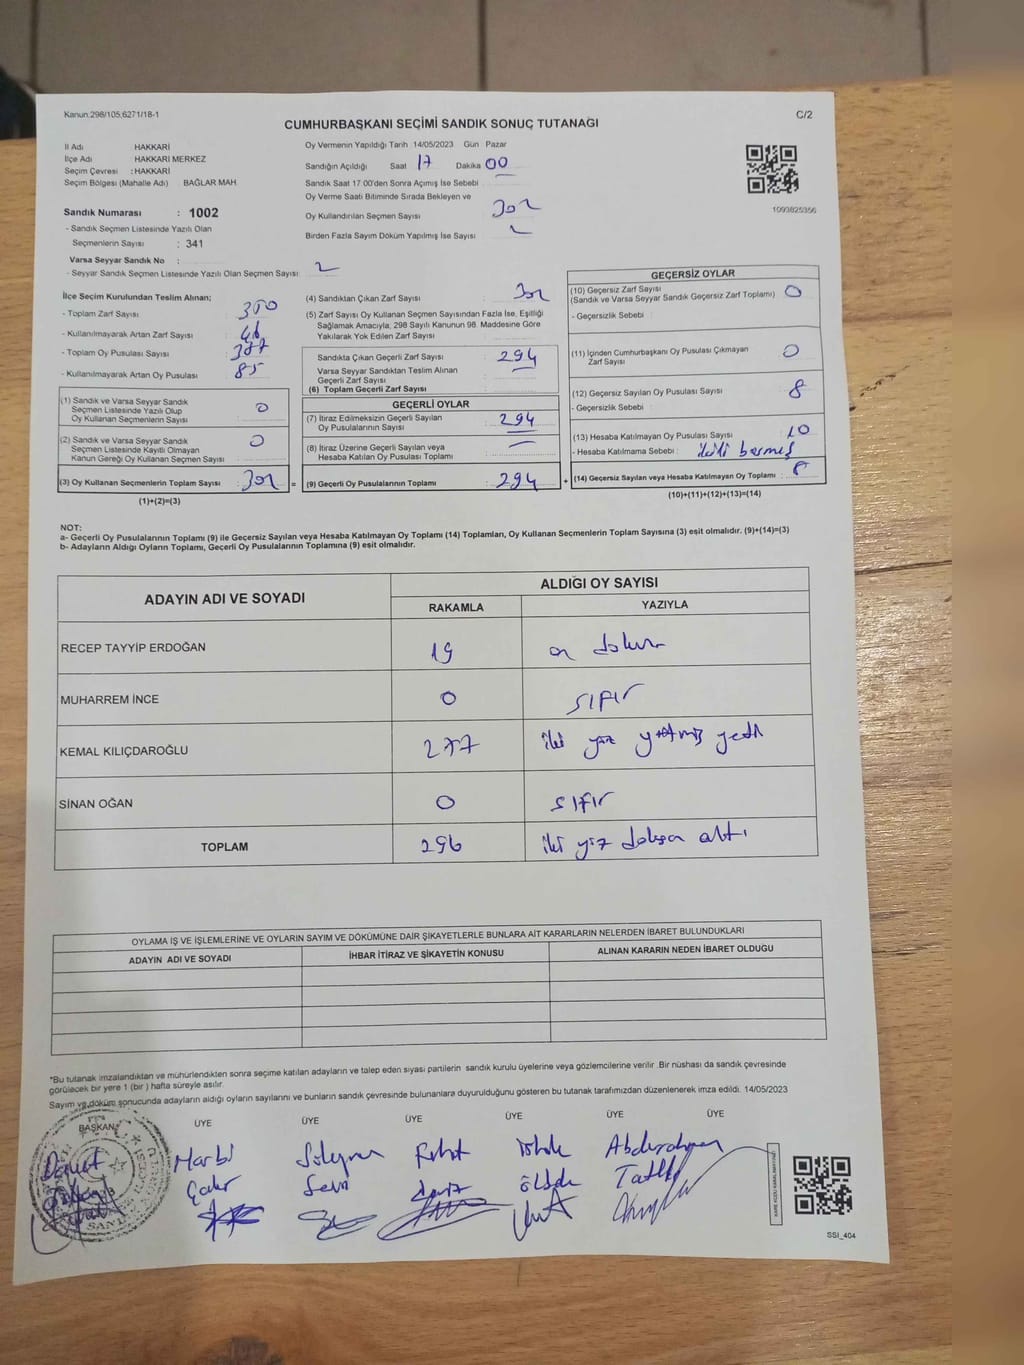 Kanun:298/105,6271/18-1
C/2
CUMHURBAŞKANI SEÇİMİ SANDIK SONUÇ TUTANAĞI
İl Adı HAKKARİ
İlçe Adı HAKKARİ MERKEZ
Seçim Çevresi : HAKKARİ
Seçim Bölgesi (Mahalle Adı) BAĞLAR MAH
Sandık Numarası : 1002
- Sandık Seçmen Listesinde Yazılı Olan
Seçmenlerin Sayısı : 341
Varsa Seyyar Sandık No :
- Seyyar Sandık Seçmen Listesinde Yazılı Olan Seçmen Sayısı :
Oy Vermenin Yapıldığı Tarih 14/05/2023 Gün Pazar
Sandığın Açıldığı Saat 17 Dakika 00
Sandık Saat 17:00'den Sonra Açımış İse Sebebi
Oy Verme Saati Bitiminde Sırada Bekleyen ve
Oy Kullandırılan Seçmen Sayısı 302
Birden Fazla Sayım Döküm Yapılmış İse Sayısı
1093825356
İlçe Seçim Kurulundan Teslim Alınan;
- Toplam Zarf Sayısı : 350
- Kullanılmayarak Artan Zarf Sayısı :
- Toplam Oy Pusulası Sayısı : 387
- Kullanılmayarak Artan Oy Pusulası : 85
(1) Sandık ve Varsa Seyyar Sandık
Seçmen Listesinde Yazılı Olup
Oy Kullanan Seçmenlerin Sayısı : 0
(2) Sandık ve Varsa Seyyar Sandık
Seçmen Listesinde Kayıtlı Olmayan
Kanun Gereği Oy Kullanan Seçmen Sayısı : 0
(3) Oy Kullanan Seçmenlerin Toplam Sayısı : 302 =
(1)+(2)=(3)
(4) Sandıktan Çıkan Zarf Sayısı : 302
(5) Zarf Sayısı Oy Kullanan Seçmen Sayısından Fazla İse, Eşitliği
Sağlamak Amacıyla, 298 Sayılı Kanunun 98. Maddesine Göre
Yakılarak Yok Edilen Zarf Sayısı :
Sandıkta Çıkan Geçerli Zarf Sayısı : 294
Varsa Seyyar Sandıktan Teslim Alınan
Geçerli Zarf Sayısı :
(6) Toplam Geçerli Zarf Sayısı
GEÇERLİ OYLAR
(7) İtiraz Edilmeksizin Geçerli Sayılan
Oy Pusulalarının Sayısı : 294
(8) İtiraz Üzerine Geçerli Sayılan veya
Hesaba Katılan Oy Pusulası Toplamı :
(9) Geçerli Oy Pusulalarının Toplamı : 294 +
GEÇERSİZ OYLAR
(10) Geçersiz Zarf Sayısı
(Sandık ve Varsa Seyyar Sandık Geçersiz Zarf Toplamı) : 0
- Geçersizlik Sebebi :
(11) İçinden Cumhurbaşkanı Oy Pusulası Çıkmayan
Zarf Sayısı : 0
(12) Geçersiz Sayılan Oy Pusulası Sayısı : 8
- Geçersizlik Sebebi :
(13) Hesaba Katılmayan Oy Pusulası Sayısı : 10
- Hesaba Katılmama Sebebi : basmış
(14) Geçersiz Sayılan veya Hesaba Katılmayan Oy Toplamı : 8
(10)+(11)+(12)+(13)=(14)
NOT:
a- Geçerli Oy Pusulalarının Toplamı (9) ile Geçersiz Sayılan veya Hesaba Katılmayan Oy Toplamı (14) Toplamları, Oy Kullanan Seçmenlerin Toplam Sayısına (3) eşit olmalıdır. (9)+(14)=(3)
b- Adayların Aldığı Oyların Toplamı, Geçerli Oy Pusulalarının Toplamına (9) eşit olmalıdır.
ADAYIN ADI VE SOYADI
ALDIĞI OY SAYISI
RAKAMLA YAZIYLA
RECEP TAYYİP ERDOĞAN 19 on dokuz
MUHARREM İNCE 0 sıfır
KEMAL KILIÇDAROĞLU 277 iki yüz yetmiş yedi
SİNAN OĞAN 0 sıfır
TOPLAM 296 iki yüz doksan altı
OYLAMA İŞ VE İŞLEMLERİNE VE OYLARIN SAYIM VE DÖKÜMÜNE DAİR ŞİKAYETLERLE BUNLARA AİT KARARLARIN NELERDEN İBARET BULUNDUKLARI
ADAYIN ADI VE SOYADI İHBAR İTİRAZ VE ŞİKAYETİN KONUSU ALINAN KARARIN NEDEN İBARET OLDUĞU
*Bu tutanak imzalandıktan ve mühürlendikten sonra seçime katılan adayların ve talep eden siyasi partilerin sandık kurulu üyelerine veya gözlemcilerine verilir .Bir nüshası da sandık çevresinde
görülecek bir yere 1 (bir ) hafta süreyle asılır.
Sayım ve döküm sonucunda adayların aldığı oyların sayılarını ve bunların sandık çevresinde bulunanlara duyurulduğunu gösteren bu tutanak tarafımızdan düzenlenerek imza edildi. 14/05/2023
BAŞKAN ÜYE ÜYE ÜYE ÜYE ÜYE ÜYE
Harbi Süleyman Abdurrahman
Tatlı
SSI_404